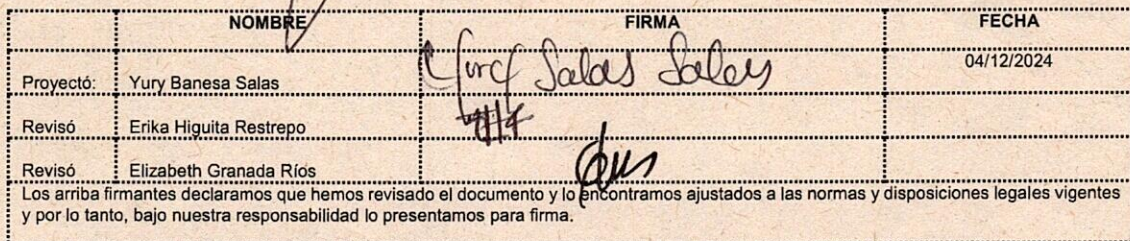 NOMBRE FIRMA FECHA
Proyectó: Yury Banesa Salas Yury Salas Salas 04/12/2024
Revisó Erika Higuita Restrepo
Revisó Elizabeth Granada Ríos
Los arriba firmantes declaramos que hemos revisado el documento y lo encontramos ajustados a las normas y disposiciones legales vigentes
y por lo tanto, bajo nuestra responsabilidad lo presentamos para firma.